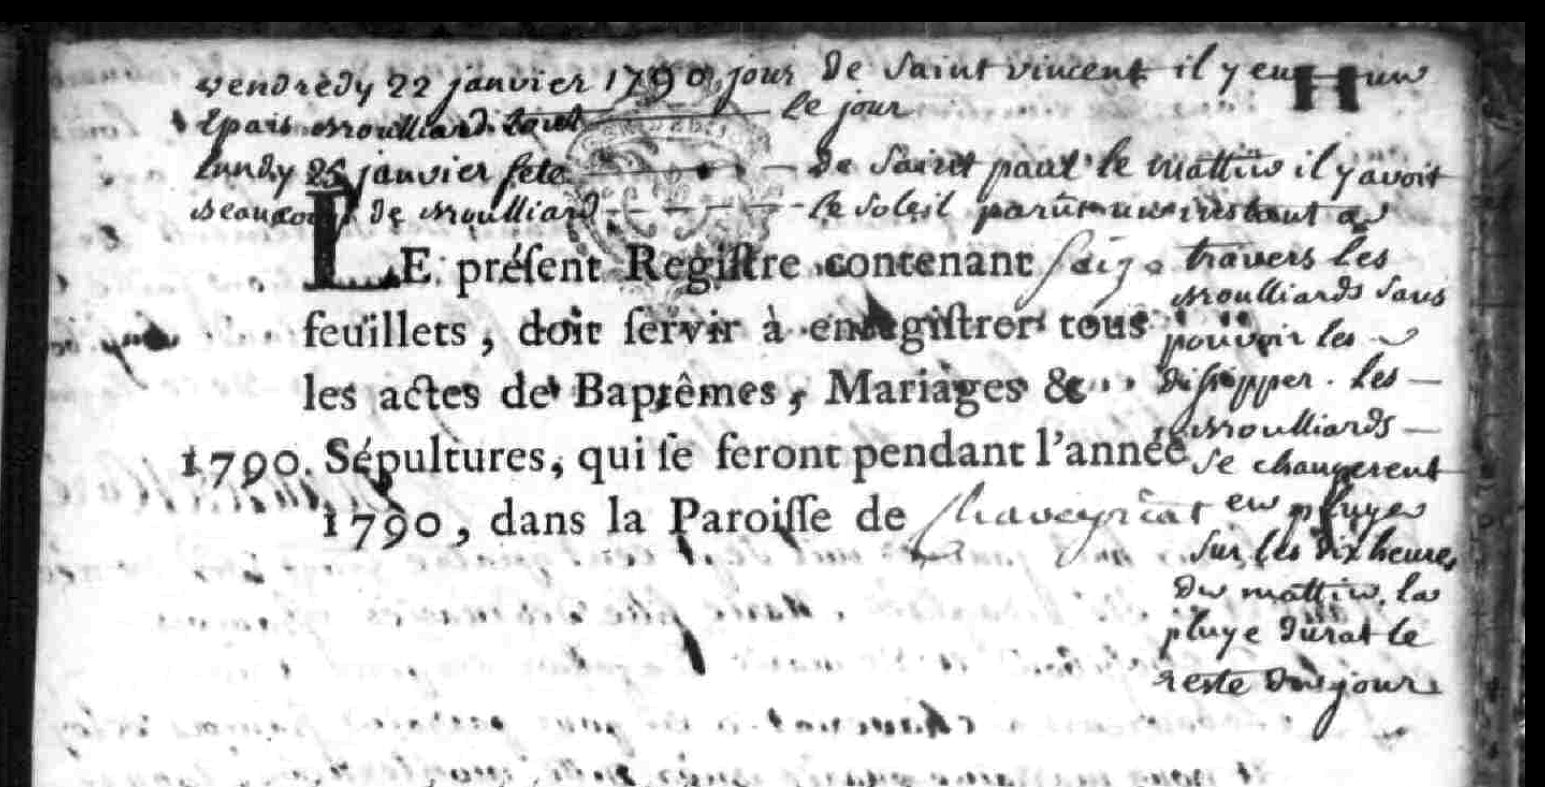 vendredy 22 janvier 1790 jour de saint vincent il y eut un
épais brouilliard. tout le jour
lundy 25 janvier fete de saint paul le mattin il y avoit
beaucoup de brouilliard le soleil parût un instant a
travers les
brouilliards sans
pouvoir les
dissipper. les
brouilliards
se changerent
en pluye
sur les dix heures
du mattin. la
pluye durat le
reste du jour
LE préſent Regiſtre contenant ſaize
feuillets, doit ſervir à enregiſtrer tous
les actes de Baptêmes, Mariages &
1790. Sépultures, qui ſe feront pendant l'année
1790, dans la Paroiſſe de Chaveyriat